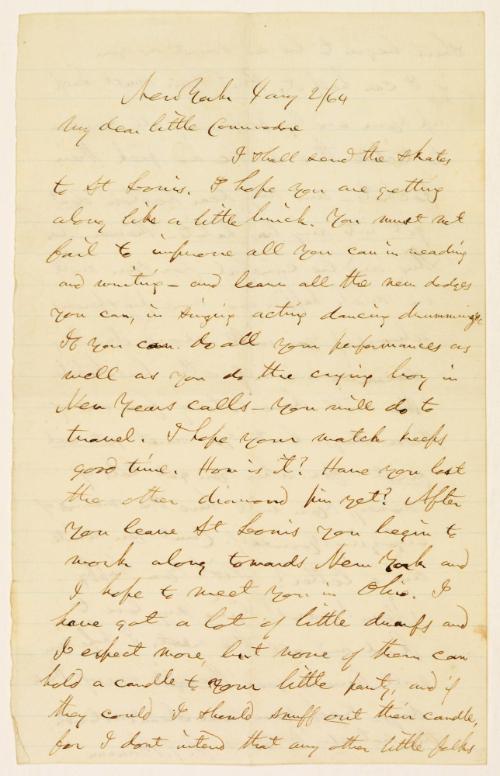 New York Jany 2/64
My dear little Commodore
I shall send the skates
to St Louis. I hope you are getting
along like a little brick. You must not
fail to improve all you can in reading
and writing – and learn all the new dodges
you can, in singing acting dancing drumming &c
If you can do all your performances as
well as you do the crying boy in
New Years calls – you will do to
travel. I hope your watch keeps
good time. How is it? Have you lost
the other diamond pin yet? After
you leave St Louis you begin to
work along towards New York and
I hope to meet you in Ohio. I
have got a lot of little dwarfs and
I expect more, but none of them can
hold a candle to your little party, and if
they could I should snuff out their candle,
for I dont intend that any other little folks